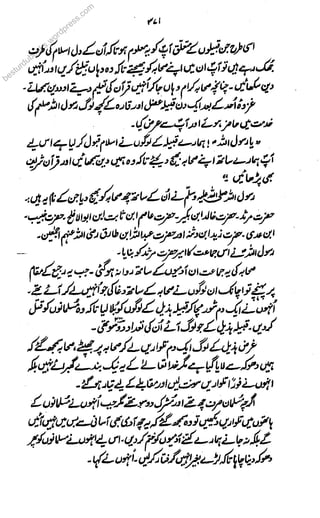 ۳۷۱
اسی طرح جن قبیلوں کے متعلق آپ کو یہ معلوم ہوتا کہ اُن کے دل اسلام کی طرف
جھک رہے ہیں تو آپ اُن میں اپنے صحابہ کو بھیجتے تاکہ وہ وہاں تبلیغ کریں اور اُنہیں
دین سکھائیں۔ چنانچہ صحابہ کرام وہاں جا کر اُنہیں قرآن کی تعلیم دیتے اور دین سمجھاتے۔
غزوۂ اُحد کے بعد ایک دن قبیلہ عضل اور قارہ کے کچھ لوگ رسول اللہ صلعم کی
خدمت میں حاضر ہوئے اور آپ سے عرض کیا۔
"یا رسول اللہ! ہمارے قبیلہ کے لوگوں نے اسلام قبول کر لیا ہے اس لیے
آپ ہمارے ساتھ اپنے صحابہ بھیج دیجئے تاکہ وہ ہمیں دین سمجھائیں اور قرآن شریف
بھی پڑھائیں"
رسول اللہ صلی اللہ علیہ وسلم نے اُن کے ساتھ چھ صحابہ کو بھیج دیا جن کے نام یہ ہیں:۔
حضرت مرثد۔ حضرت خالد ابن بکیر۔ حضرت عاصم ابن ثابت ابن ابوالافلح۔ حضرت خبیب۔
ابن عدی۔ حضرت زید ابن دثنہ اور حضرت عبداللہ ابن طارق رضی اللہ عنہم اجمعین۔
رسول اللہ نے اس جماعت کا امیر حضرت مرثد کو بنایا۔
صحابہ کی یہ جماعت ان آدمیوں کے ساتھ روانہ ہو گئی۔ جب یہ رجیع کے مقام
پر پہنچے تو اچانک ان لوگوں نے صحابہ کے ساتھ دغا کی جو اُنہیں لے کر آئے تھے۔
اُنہوں نے ایک دم شور مچا کر قبیلہ ہذیل کے لوگوں کو بُلا لیا تاکہ وہ مسلمانوں کو قتل
کر دیں۔ قبیلہ ہذیل کے جو لوگ آئے اُن کی تعداد دو سو تھی۔
غرض ہذیل کے لوگ ایک دم تلواریں لے کر صحابہ پر جھپٹے، صحابہ سمجھ گئے کہ
ہمیں دھوکہ سے لایا گیا ہے مگر خدا تعالیٰ کے یہ نیک بندے گھبرائے نہیں بلکہ
انہوں نے فوراً تلواریں سونت لیں اور مقابلے کے لیے تیار ہو گئے۔
اگرچہ مسلمان صرف چھ تھے اور مشرک دو سو تھے مگر جب اُنہوں نے مسلمانوں کے
ہاتھوں میں تلواریں دیکھیں تو وہ سمجھ گئے کہ یہ چھ آدمی بھی آسانی سے بس میں نہیں آئیں
گے بلکہ نہ جانے ہمارے کتنے آدمیوں کو ختم کر دیں۔ اس لیے اُنہوں نے مسلمانوں کو پھر
دھوکہ دینا چاہا تاکہ لڑے بغیر انہیں گرفتار کر لیں۔ اُنہوں نے کہا۔
besturdubooks.wordpress.com